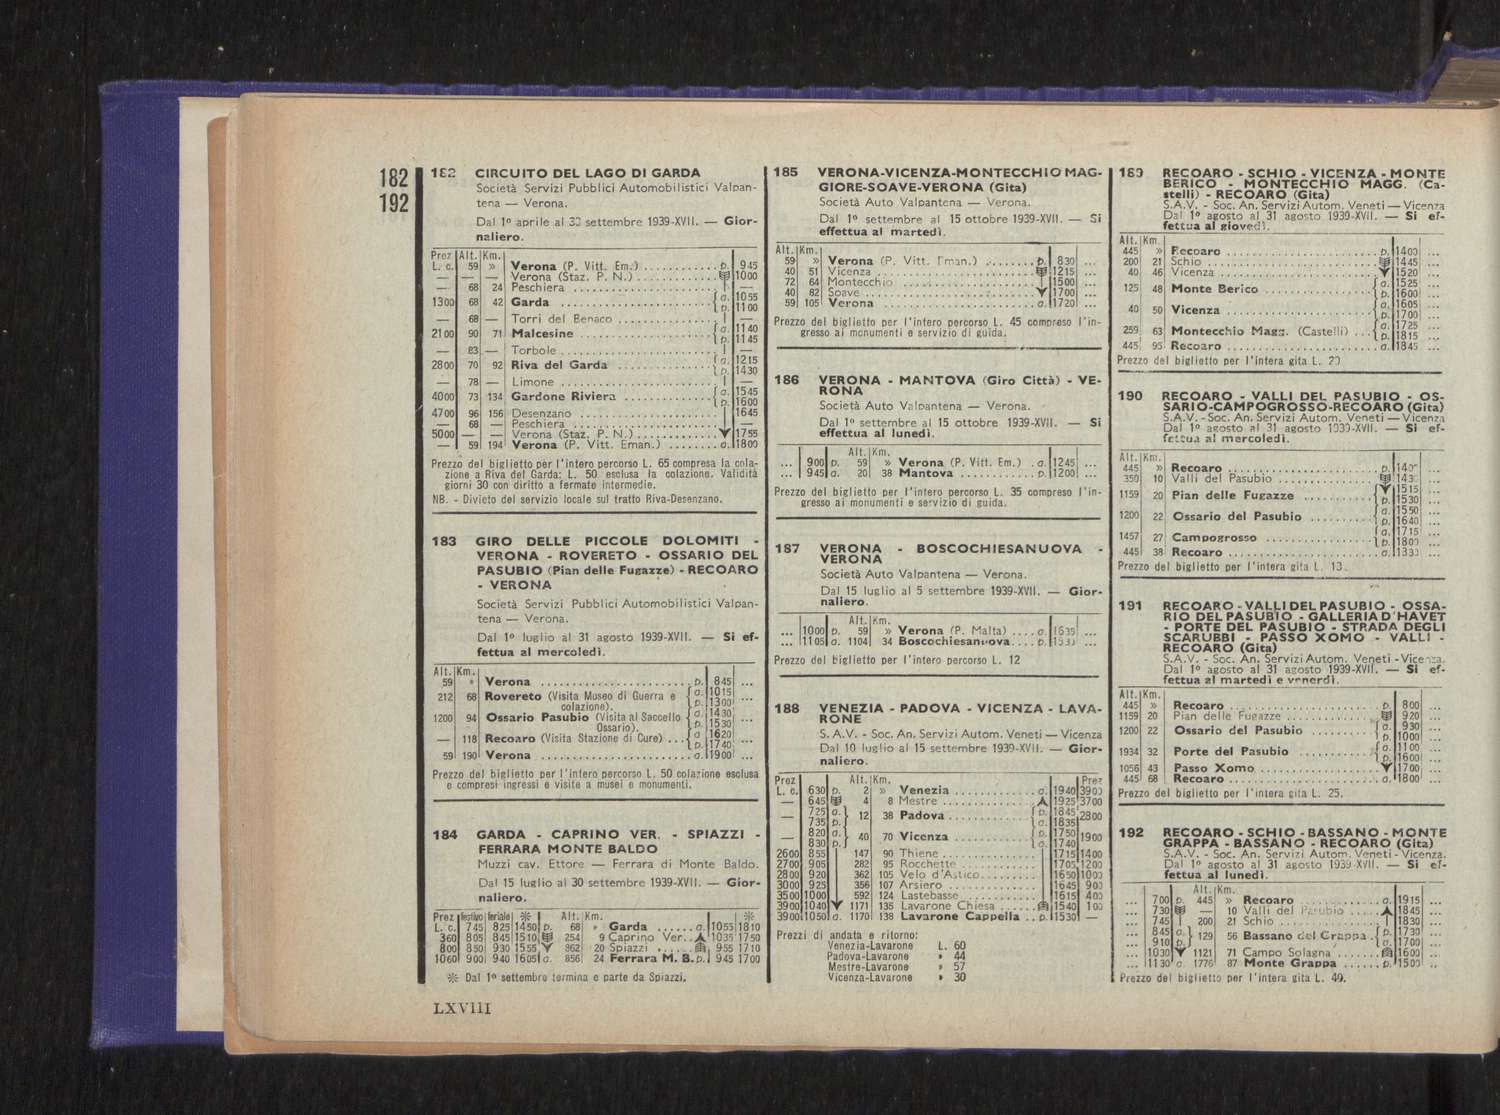 182
192
182 CIRCUITO DEL LAGO DI GARDA
Società Servizi Pubblici Automobilistici Valpan-
tena — Verona.
Dal 1º aprile al 30 settembre 1939-XVII. — Gior-
naliero.
Prez Alt. Km.
L. c. 59 » Verona (P. Vitt. Em.) p. 9 45
— — — Verona (Staz. P. N.) 10 00
— 68 24 Peschiera —
13 00 68 42 Garda a. 10 55
p. 11 00
— 68 — Torri del Benaco —
21 00 90 71 Malcesine a. 11 40
p. 11 45
— 83 — Torbole —
28 00 70 92 Riva del Garda a. 12 15
p. 14 30
— 78 — Limone —
40 00 73 134 Gardone Riviera a. 15 45
p. 16 00
47 00 96 156 Desenzano 16 45
— 68 — Peschiera
50 00 — — Verona (Staz. P. N.) 17 55
— 59 194 Verona (P. Vitt. Eman.) a. 18 00
Prezzo del biglietto per l'intero percorso L. 65 compresa la cola-
zione a Riva del Garda; L. 50 esclusa la colazione. Validità
giorni 30 con diritto a fermate intermedie.
NB. - Divieto del servizio locale sul tratto Riva-Desenzano.
183 GIRO DELLE PICCOLE DOLOMITI -
VERONA - ROVERETO - OSSARIO DEL
PASUBIO (Pian delle Fugazze) - RECOARO
- VERONA
Società Servizi Pubblici Automobilistici Valpan-
tena — Verona.
Dal 1º luglio al 31 agosto 1939-XVII. — Si ef-
fettua al mercoledì.
Alt. Km.
59 » Verona p. 8 45 ...
212 68 Rovereto (Visita Museo di Guerra e a. 10 15 ...
colazione). p. 13 00
1200 94 Ossario Pasubio (Visita al Saccello a. 14 30 ...
Ossario). p. 15 30
— 118 Recoaro (Visita Stazione di Cure) a. 16 20 ...
p. 17 40
59 190 Verona a. 19 00 ...
Prezzo del biglietto per l'intero percorso L. 50 colazione esclusa
e compresi ingressi e visite a musei e monumenti.
184 GARDA - CAPRINO VER. - SPIAZZI -
FERRARA MONTE BALDO
Muzzi cav. Ettore — Ferrara di Monte Baldo.
Dal 15 luglio al 30 settembre 1939-XVII. — Gior-
naliero.
Prez festivo feriale ※ Alt. Km. ※
L. c. 7 45 8 25 14 50 p. 68 » Garda a. 10 55 18 10
3 60 8 05 8 45 15 10 254 9 Caprino Ver. 10 35 17 50
8 00 8 50 9 30 15 55 862 20 Spiazzi 9 55 17 10
10 60 9 00 9 40 16 05 a. 856 24 Ferrara M. B. p. 9 45 17 00
※ Dal 1º settembre termina e parte da Spiazzi.
LXVIII
185 VERONA-VICENZA-MONTECCHIO MAG-
GIORE-SOAVE-VERONA (Gita)
Società Auto Valpantena — Verona.
Dal 1º settembre al 15 ottobre 1939-XVII. — Si
effettua al martedì.
Alt. Km.
59 » Verona (P. Vitt. Eman.) p. 8 30 ...
40 51 Vicenza 12 15 ...
72 64 Montecchio 15 00 ...
40 82 Soave 17 00 ...
59 105 Verona a. 17 20 ...
Prezzo del biglietto per l'intero percorso L. 45 compreso l'in-
gresso ai monumenti e servizio di guida.
186 VERONA - MANTOVA (Giro Città) - VE-
RONA
Società Auto Valpantena — Verona.
Dal 1º settembre al 15 ottobre 1939-XVII. — Si
effettua al lunedì.
Alt. Km.
... 9 00 p. 59 » Verona (P. Vitt. Em.) a. 12 45 ...
... 9 45 a. 20 38 Mantova p. 12 00 ...
Prezzo del biglietto per l'intero percorso L. 35 compreso l'in-
gresso ai monumenti e servizio di guida.
187 VERONA - BOSCOCHIESANUOVA -
VERONA
Società Auto Valpantena — Verona.
Dal 15 luglio al 5 settembre 1939-XVII. — Gior-
naliero.
Alt. Km.
... 10 00 p. 59 » Verona (P. Malta) a. 16 35 ...
... 11 05 a. 1104 34 Boscochiesanuova p. ...
Prezzo del biglietto per l'intero percorso L. 12
188 VENEZIA - PADOVA - VICENZA - LAVA-
RONE
S. A.V. - Soc. An. Servizi Autom. Veneti — Vicenza
Dal 10 luglio al 15 settembre 1939-XVII. — Gior-
naliero.
Prez Alt. Km. Prez
L. c. 6 30 p. 2 » Venezia a. 19 40 39 00
— 6 45 4 8 Mestre 19 25 37 00
— 7 25 a. 12 38 Padova p. 18 45 28 00
7 35 p. a. 18 35
— 8 20 a. 40 70 Vicenza p. 17 50 19 00
8 30 p. a. 17 40
26 00 8 55 147 90 Thiene 17 15 14 00
27 00 9 05 282 95 Rocchette 17 05 12 00
28 00 9 20 362 105 Velo d'Astico 16 50 10 00
30 00 9 25 356 107 Arsiero 16 45 9 00
35 00 10 00 592 124 Lastebasse 16 15 4 00
39 00 10 40 1171 135 Lavarone Chiesa 15 40 1 00
39 00 10 50 a. 1170 138 Lavarone Cappella p. 15 30 —
Prezzi di andata e ritorno:
Venezia-Lavarone L. 60
Padova-Lavarone » 44
Mestre-Lavarone » 57
Vicenza-Lavarone » 30
189 RECOARO - SCHIO - VICENZA - MONTE
BERICO - MONTECCHIO MAGG. (Ca-
stelli) - RECOARO (Gita)
S.A.V. - Soc. An. Servizi Autom. Veneti — Vicenza
Dal 1º agosto al 31 agosto 1939-XVII. — Si ef-
fettua al giovedì.
Alt. Km.
445 » Recoaro p. 14 00 ...
200 21 Schio 14 45 ...
40 46 Vicenza 15 20 ...
125 48 Monte Berico a. 15 25 ...
p. 16 00
40 50 Vicenza a. 16 05 ...
p. 17 00
259 63 Montecchio Magg. (Castelli) a. 17 25 ...
p. 18 15
445 95 Recoaro a. 18 45 ...
Prezzo del biglietto per l'intera gita L. 20.
190 RECOARO - VALLI DEL PASUBIO - OS-
SARIO-CAMPOGROSSO-RECOARO (Gita)
S.A.V. - Soc. An. Servizi Autom. Veneti — Vicenza
Dal 1º agosto al 31 agosto 1939-XVII. — Si ef-
fettua al mercoledì.
Alt. Km.
445 » Recoaro p. ...
350 10 Valli del Pasubio ...
1159 20 Pian delle Fugazze 15 15 ...
p. 15 30
1200 22 Ossario del Pasubio a. 15 50 ...
p. 16 40
1457 27 Campogrosso a. 17 15 ...
p. 18 00
445 38 Recoaro a. ...
Prezzo del biglietto per l'intera gita L. 13.
191 RECOARO - VALLI DEL PASUBIO - OSSA-
RIO DEL PASUBIO - GALLERIA D'HAVET
- PORTE DEL PASUBIO - STRADA DEGLI
SCARUBBI - PASSO XOMO - VALLI -
RECOARO (Gita)
S.A.V. - Soc. An. Servizi Autom. Veneti - Vicenza.
Dal 1º agosto al 31 agosto 1939-XVII. — Si ef-
fettua al martedì e venerdì.
Alt. Km.
445 » Recoaro p. 8 00 ...
1159 20 Pian delle Fugazze 9 20 ...
1200 22 Ossario del Pasubio a. 9 30 ...
p. 10 00
1934 32 Porte del Pasubio a. 11 00 ...
p. 16 00
1056 43 Passo Xomo 17 00 ...
445 68 Recoaro a. 18 00 ...
Prezzo del biglietto per l'intera gita L. 25.
192 RECOARO - SCHIO - BASSANO - MONTE
GRAPPA - BASSANO - RECOARO (Gita)
S.A.V. - Soc. An. Servizi Autom. Veneti - Vicenza.
Dal 1º agosto al 31 agosto 1939-XVII. — Si ef-
fettua al lunedì.
Alt. Km.
... 7 00 p. 445 » Recoaro a. 19 15 ...
... 7 30 — 10 Valli del Pasubio 18 45 ...
... 7 45 200 21 Schio 18 30 ...
... 8 45 a. 129 56 Bassano del Grappa p. 17 30 ...
9 10 p. a. 17 00
... 10 30 1121 71 Campo Solagna 16 00 ...
... 11 30 a. 1776 87 Monte Grappa p. 15 00 ..
Prezzo del biglietto per l'intera gita L. 40.